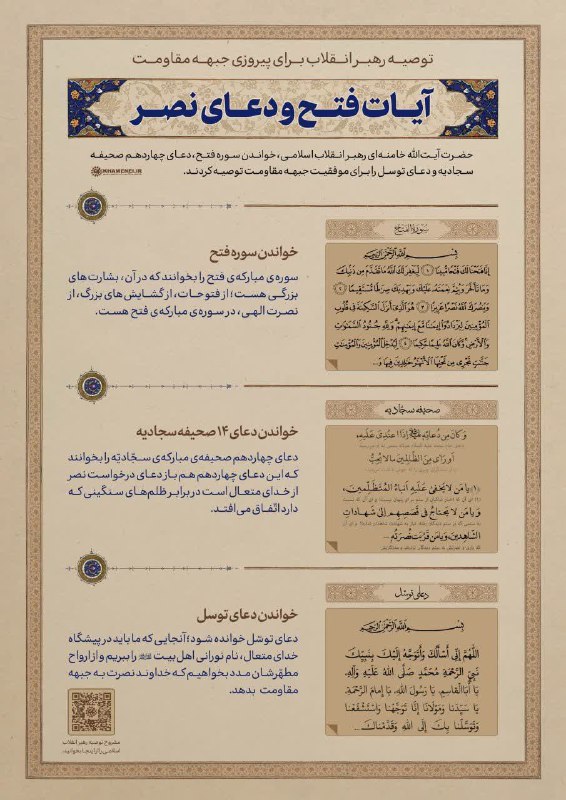 توصیه رهبر انقلاب برای پیروزی جبهه مقاومت
آیات فتح و دعای نصر
حضرت آیت‌الله خامنه‌ای رهبر انقلاب اسلامی، خواندن سوره فتح، دعای چهاردهم صحیفه
سجادیه و دعای توسل را برای موفقیت جبهه مقاومت توصیه کردند.
KHAMENEI.IR
سورة الفتح
بِسْمِ اللَّهِ الرَّحْمَٰنِ الرَّحِيمِ
إِنَّا فَتَحْنَا لَكَ فَتْحًا مُبِينًا ﴿١﴾ لِيَغْفِرَ لَكَ اللَّهُ مَا تَقَدَّمَ مِنْ ذَنْبِكَ
وَمَا تَأَخَّرَ وَيُتِمَّ نِعْمَتَهُ عَلَيْكَ وَيَهْدِيَكَ صِرَاطًا مُسْتَقِيمًا ﴿٢﴾
وَيَنْصُرَكَ اللَّهُ نَصْرًا عَزِيزًا ﴿٣﴾ هُوَ الَّذِي أَنْزَلَ السَّكِينَةَ فِي قُلُوبِ
الْمُؤْمِنِينَ لِيَزْدَادُوا إِيمَانًا مَعَ إِيمَانِهِمْ وَلِلَّهِ جُنُودُ السَّمَاوَاتِ
وَالْأَرْضِ وَكَانَ اللَّهُ عَلِيمًا حَكِيمًا ﴿٤﴾ لِيُدْخِلَ الْمُؤْمِنِينَ وَالْمُؤْمِنَاتِ
جَنَّاتٍ تَجْرِي مِنْ تَحْتِهَا الْأَنْهَارُ خَالِدِينَ فِيهَا وَ...
خواندن سوره فتح
سوره‌ی مبارکه‌ی فتح را بخوانند که در آن، بشارت‌های
بزرگی هست؛ از فتوحات، از گشایش‌های بزرگ، از
نصرت الهی، در سوره‌ی مبارکه‌ی فتح هست.
صحیفه سجادیه
وَ كَانَ مِن دُعَائِهِ إِذَا اعْتُدِيَ عَلَيْهِ،
أَو رَأى مِنَ الظَّالِمِينَ مَا لَا يُحِبُّ
﴿١﴾ يَا مَنْ لَا يَخْفَى عَلَيْهِ أَنْبَاءُ الْمُتَظَلِّمِينَ،
وَ يَا مَنْ لَا يَحْتَاجُ فِي قَصَصِهِمْ إِلَى شَهَادَاتِ
الشَّاهِدِينَ، وَ يَا مَنْ قَرُبَتْ نُصْرَتُهُ ...
خواندن دعای ۱۴ صحیفه سجادیه
دعای چهاردهم صحیفه‌ی مبارکه‌ی سجّادیّه را بخوانند
که این دعای چهاردهم هم باز دعای درخواست نصر
از خدای متعال است در برابر ظلم‌های سنگینی که
دارد اتّفاق می‌افتد.
دعای توسل
بِسْمِ اللَّهِ الرَّحْمَٰنِ الرَّحِيمِ
اللَّهُمَّ إِنِّي أَسْأَلُكَ وَ أَتَوَجَّهُ إِلَيْكَ بِنَبِيِّكَ
نَبِيِّ الرَّحْمَةِ مُحَمَّدٍ صَلَّى اللَّهُ عَلَيْهِ وَ آلِهِ،
يَا أَبَا الْقَاسِمِ، يَا رَسُولَ اللَّهِ، يَا إِمَامَ الرَّحْمَةِ،
يَا سَيِّدَنَا وَ مَوْلَانَا إِنَّا تَوَجَّهْنَا وَ اسْتَشْفَعْنَا
وَ تَوَسَّلْنَا بِكَ إِلَى اللَّهِ وَ قَدَّمْنَاكَ ...
خواندن دعای توسل
دعای توسّل خوانده شود؛ آنجایی که ما باید در پیشگاه
خدای متعال، نام نورانی اهل بیت را ببریم و از ارواح
مطهّرشان مدد بخواهیم که خداوند نصرت به جبهه
مقاومت بدهد.
مشروح توصیه رهبر انقلاب
اسلامی را از اینجا بخوانید.